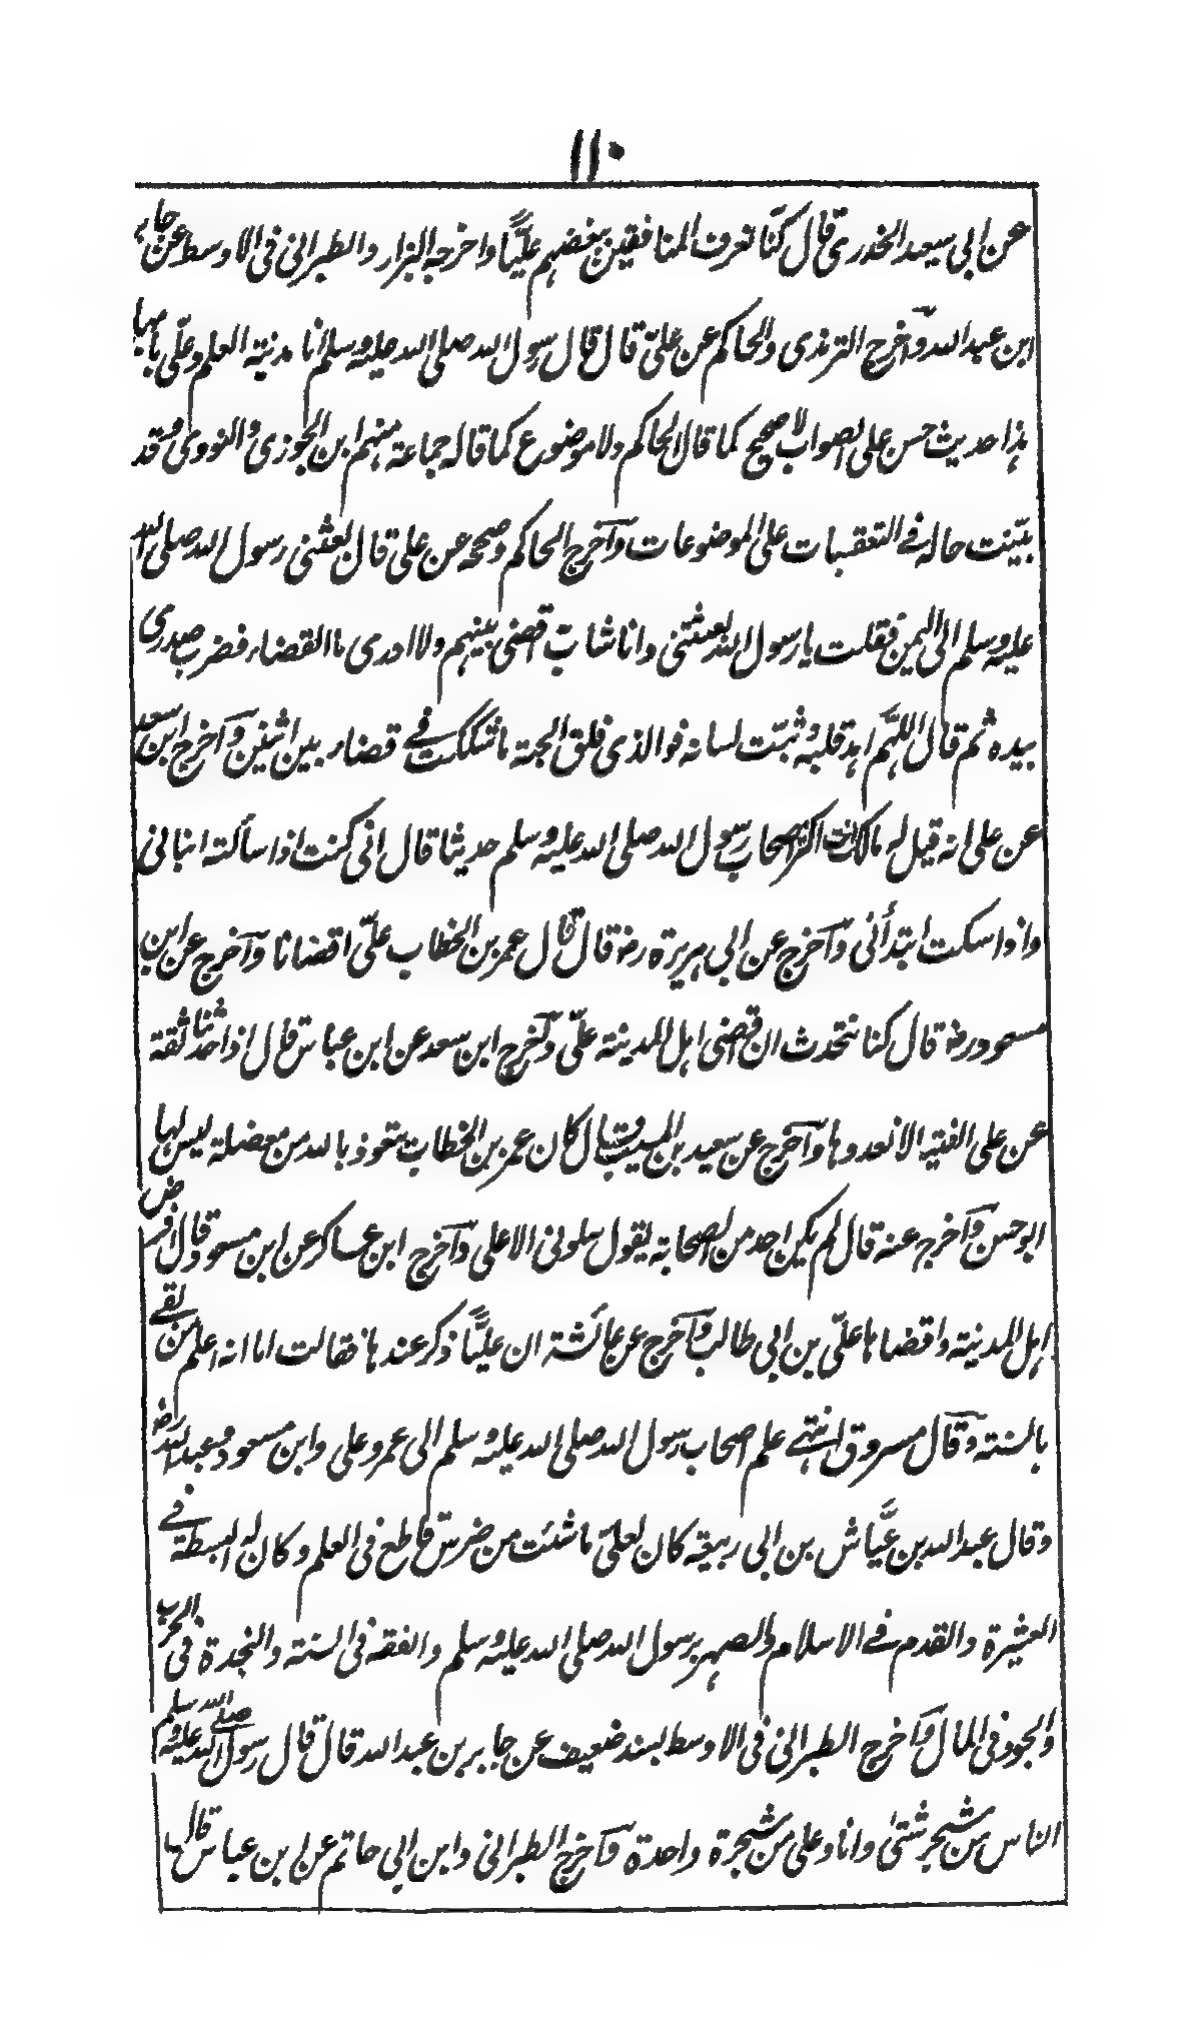 ١١٠
عن ابی سعید الخدری قال کنّا نعرف المنافقین ببغضهم علیًّا واخرجه البزار والطبرانی فی الاوسط عن جابر
ابن عبد الله وآخرج الترمذی والحاکم عن علیّ قال قال رسول الله صلی الله علیه وسلم انا مدینة العلم وعلّی بابها
هذا حدیث حسن علی الصواب لا صحیح کما قال الحاکم ولا موضوع کما قاله جماعة منهم ابن الجوزی والنووی وقد
بیّنت حاله فے التعقبات علی الموضوعات وآخرج الحاکم وصححه عن علی قال بعثنی رسول الله صلی الله
علیه وسلم الی الیمن فقلت یا رسول الله بعثتنی وانا شاب اقضی بینهم ولا ادری ما القضاء فضرب صدری
بیده ثم قال اللهّم اهد قلبه وثبّت لسانه فوالذی فلق الحبة ما شککت فے قضاء بین اثنین وآخرج ابن سعد
عن علی انه قیل له مالک انت اکثر اصحاب رسول الله صلی الله علیه وسلم حدیثا قال انی کنت اذا سألته انبانی
واذا سکت ابتدأنی وآخرج عن ابی هریرة رض قال قال عمر بن الخطاب علیّ اقضانا وآخرج عن ابن
مسعود رض قال کنا نتحدث ان اقضی اهل المدینة علیّ وآخرج ابن سعد عن ابن عباس قال اذا حدثنا ثقة
عن علی الفتیا لا نعدوها وآخرج عن سعید بن المسیب قال کان عمر بن الخطاب یتعوذ بالله من معضلة لیس لها
ابو حسن وآخرج عنه قال لم یکن احد من الصحابة یقول سلونی الا علی وآخرج ابن عساکر عن ابن مسعود قال افرض
اهل المدینة واقضاها علیّ بن ابی طالب وآخرج عن عائشة ان علیًّا ذکر عندها فقالت اما انه اعلم من بقے
بالسنة وقال مسروق انتهے علم اصحاب رسول الله صلی الله علیه وسلم الی عمر وعلی وابن مسعود وعبد الله رض
وقال عبد الله بن عیّاش بن ابی ربیعة کان لعلیّ ما شئت من ضرس قاطع فی العلم وکان له البسطة فے
العشیرة والقدم فے الاسلام والصهر برسول الله صلی الله علیه وسلم والفقه فی السنة والنجدة فی الحرب
والجود فی المال وآخرج الطبرانی فی الاوسط بسند ضعیف عن جابر بن عبد الله قال قال رسول الله صلی الله علیه وسلم
الناس من شجر شتیٰ وانا وعلی من شجرة واحدة وآخرج الطبرانی وابن ابی حاتم عن ابن عباس قال ما